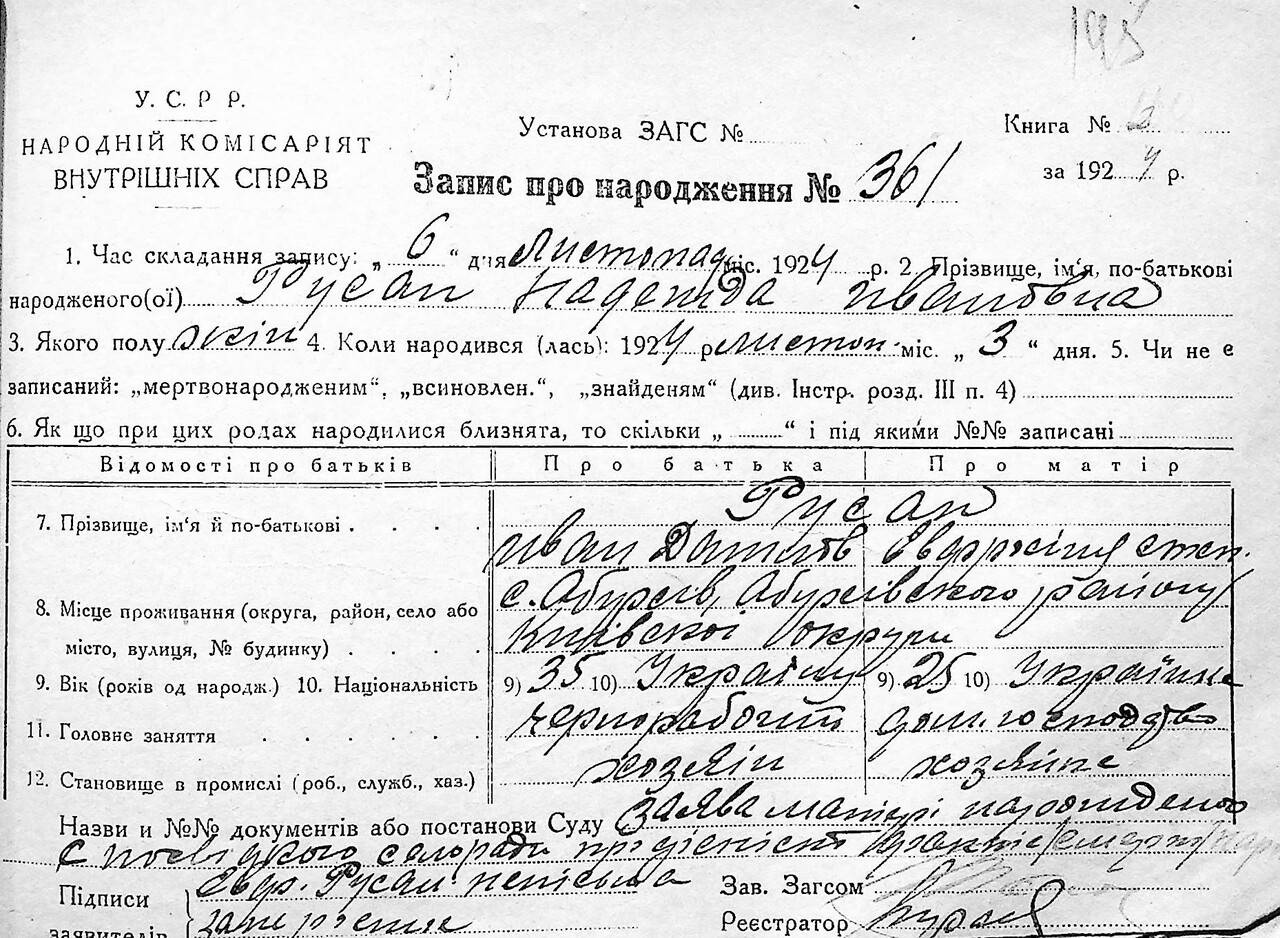 195
У. С. Р Р.
НАРОДНІЙ КОМІСАРІЯТ
ВНУТРІШНІХ СПРАВ
Установа ЗАГС №
Книга № 3
за 1924 р.
Запис про народження № 361
1. Час складання запису: „ 6 “ дня Листопад міс. 1924 р. 2 Прізвище, ім'я, по-батькові
народженого(ої) Русан Надежда Ивановна
3. Якого полу жін 4. Коли народився (лась): 1924 р листоп. міс. „ 3 “ дня. 5. Чи не є
записаний: „мертвонародженим“, „всиновлен.“, „знайденям“ (див. Інстр. розд. III п. 4)
6. Як що при цих родах народилися близнята, то скільки „ “ і під якими №№ записані
Відомості про батьків Про батька Про матір
7. Прізвище, ім‘я й по-батькові . . . . Русан
Иван Данилов Евфросінія степ.
8. Місце проживання (округа, район, село або
місто, вулиця, № будинку) . . . .
с. Обухів, Обухівского району
Київскої округи
9. Вік (років од народж.) 10. Національність 9) 35 10) Українец 9) 25 10) Українка
11. Головне заняття . . . . . чернорабочий дом. господство
12. Становище в промислі (роб., служб., хаз.) хозяін хозяйка
Назви и №№ документів або постанови Суду Заява матері
с сельради
Підписи
заявителів
Евдр. Русан неписьмен
Зав. Загсом
Реєстратор